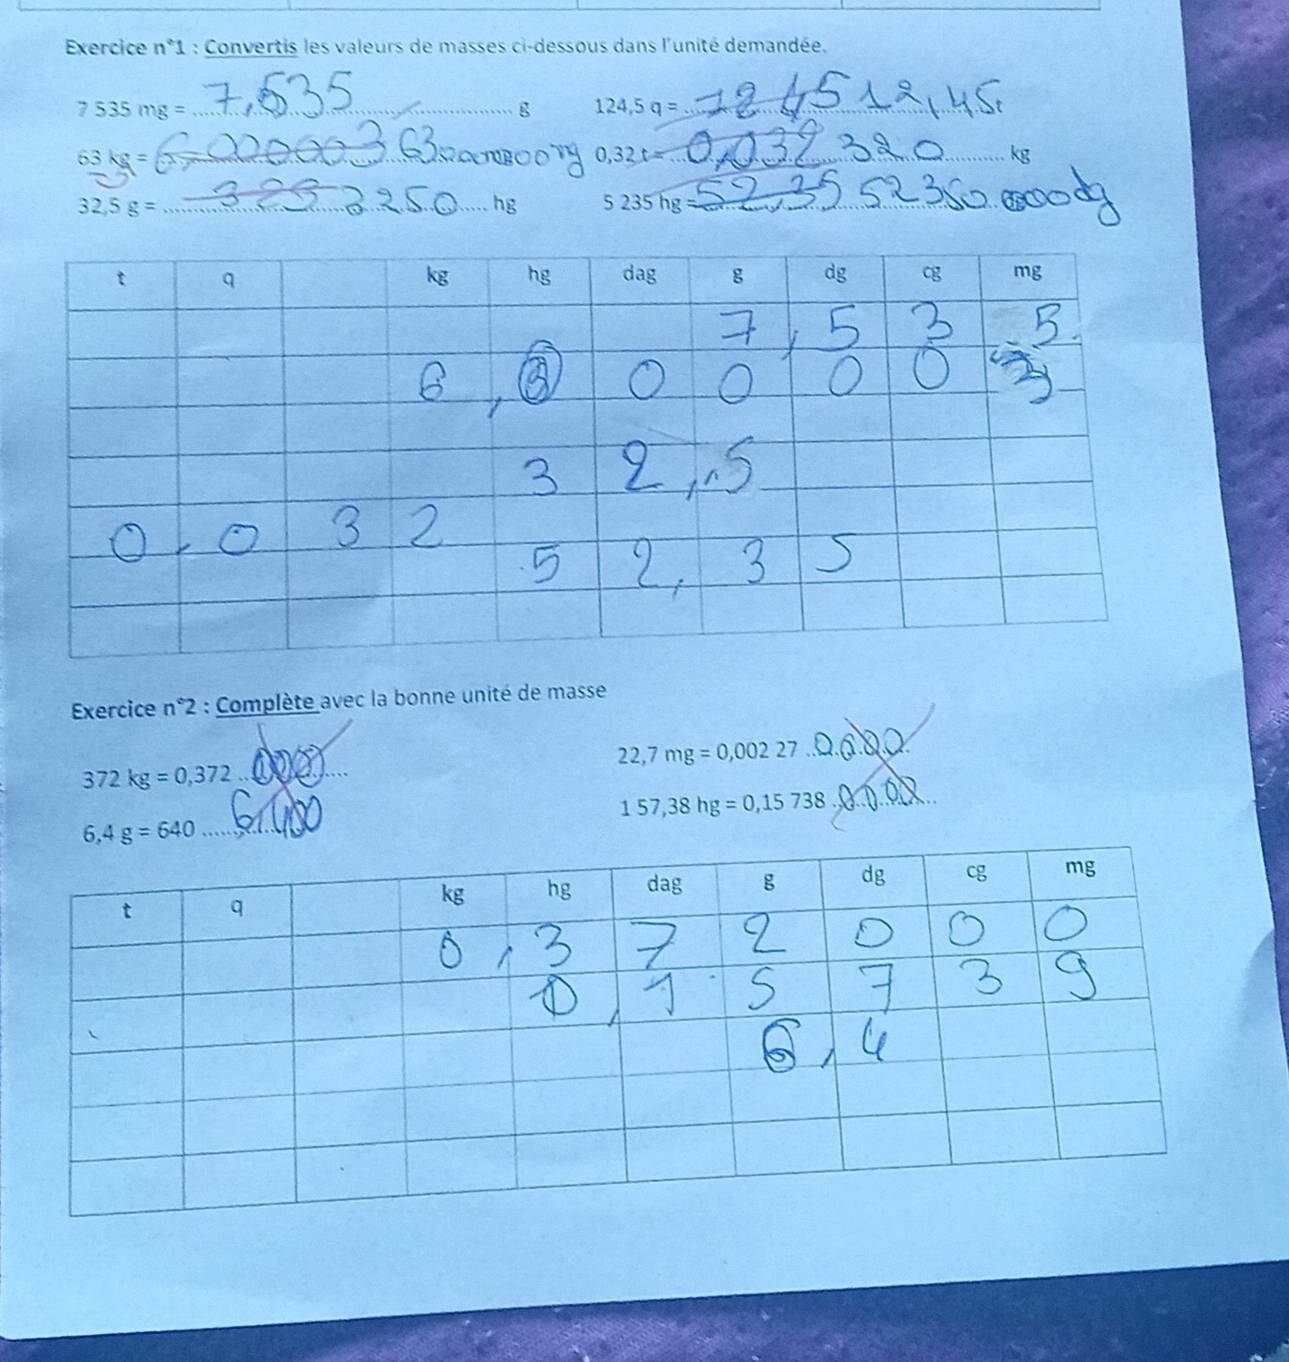 Exercice n°1 : Convertis les valeurs de masses ci-dessous dans l'unité demandée.
7 535 mg = 7,535 g 124,5 q = 1245 12,45 t
63 kg = 63000000 mg 0,32 t = 0,032 320 kg
32,5 g = 325 3250 hg 5 235 hg = 52,35 52350 dg
t q kg hg dag g dg cg mg
7, 5 3 5
6, 3 0 0 0 0 3
3 2, 5
0, 0 3 2
5 2, 3 5
Exercice n°2 : Complète avec la bonne unité de masse
372 kg = 0,372 000 22,7 mg = 0,002 27 0.000
6,4 g = 640 6,400 1 57,38 hg = 0,15 738 0000
t q kg hg dag g dg cg mg
0, 3 7 2 0 0 0
0, 1 5 7 3 9
6, 4